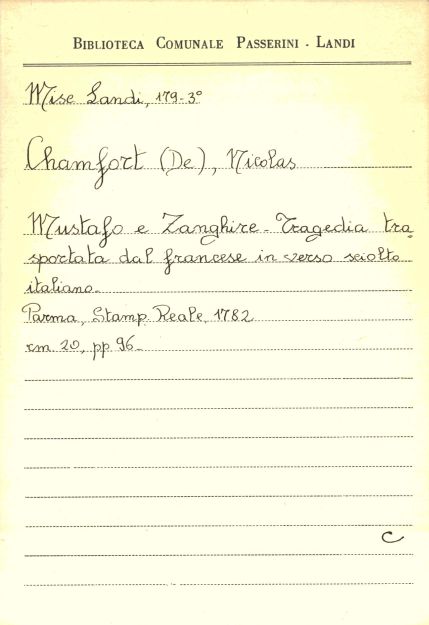 BIBLIOTECA COMUNALE PASSERINI - LANDI
Misc Landi, 179-3°
Chamfort (De), Nicolas
Mustafo e Zanghire - Tragedia tra=
sportata dal francese in verso sciolto
italiano.
Parma, Stamp. Reale, 1782
cm. 20, pp 96.
C